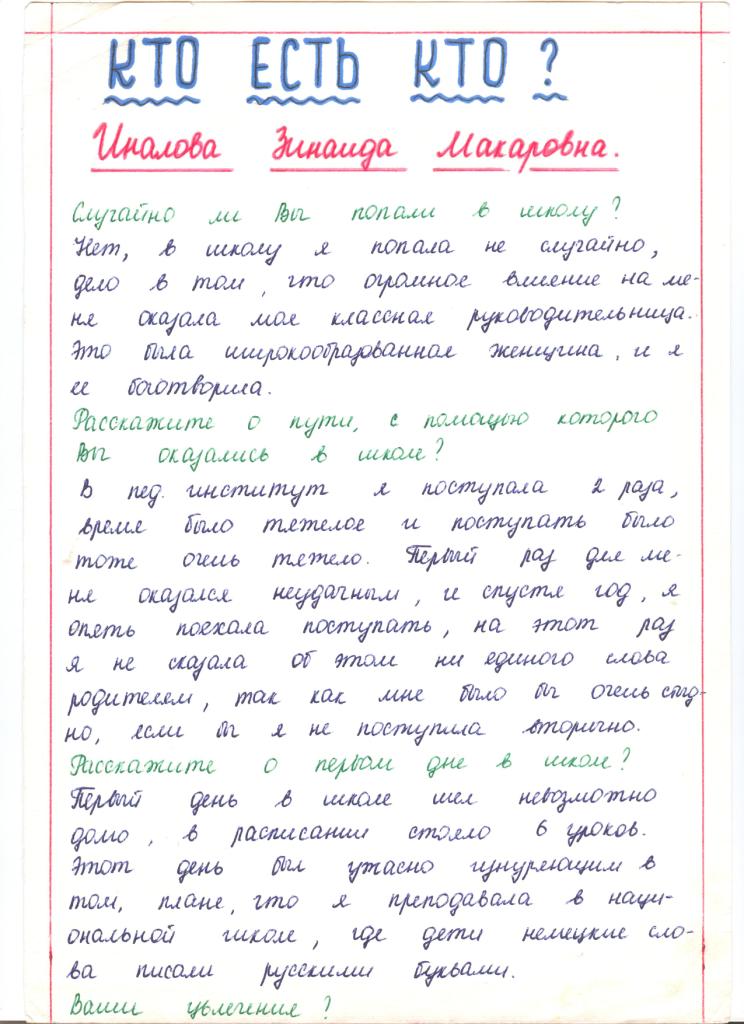 КТО ЕСТЬ КТО?
Иналова Зинаида Макаровна.
Случайно ли Вы попали в школу?
Нет, в школу я попала не случайно,
дело в том, что огромное влиение на ме-
ня оказала моя классная руководительница.
Это была широкообразованная женщина, и я
ее боготворила.
Расскажите о пути, с помощью которого
Вы оказались в школе?
В пед. институт я поступала 2 раза,
время было тяжелое и поступать было
тоже очень тяжело. Перый раз для ме-
ня оказался неудачным, и спустя год, я
опять поехала поступать, на этот раз
я не сказала об этом ни единого слова
родителям, так как мне было бы очень стыд-
но, если бы я не поступила вторично.
Расскажите о первом дне в школе?
Перый день в школе шел невозможно
долго, в расписании стояло 6 уроков.
Этот день был ужасно изнуряющим в
том, плане, что я преподавала в наци-
ональной школе, где дети немецкие сло-
ва писали русскими буквами.
Ваши увлечения?